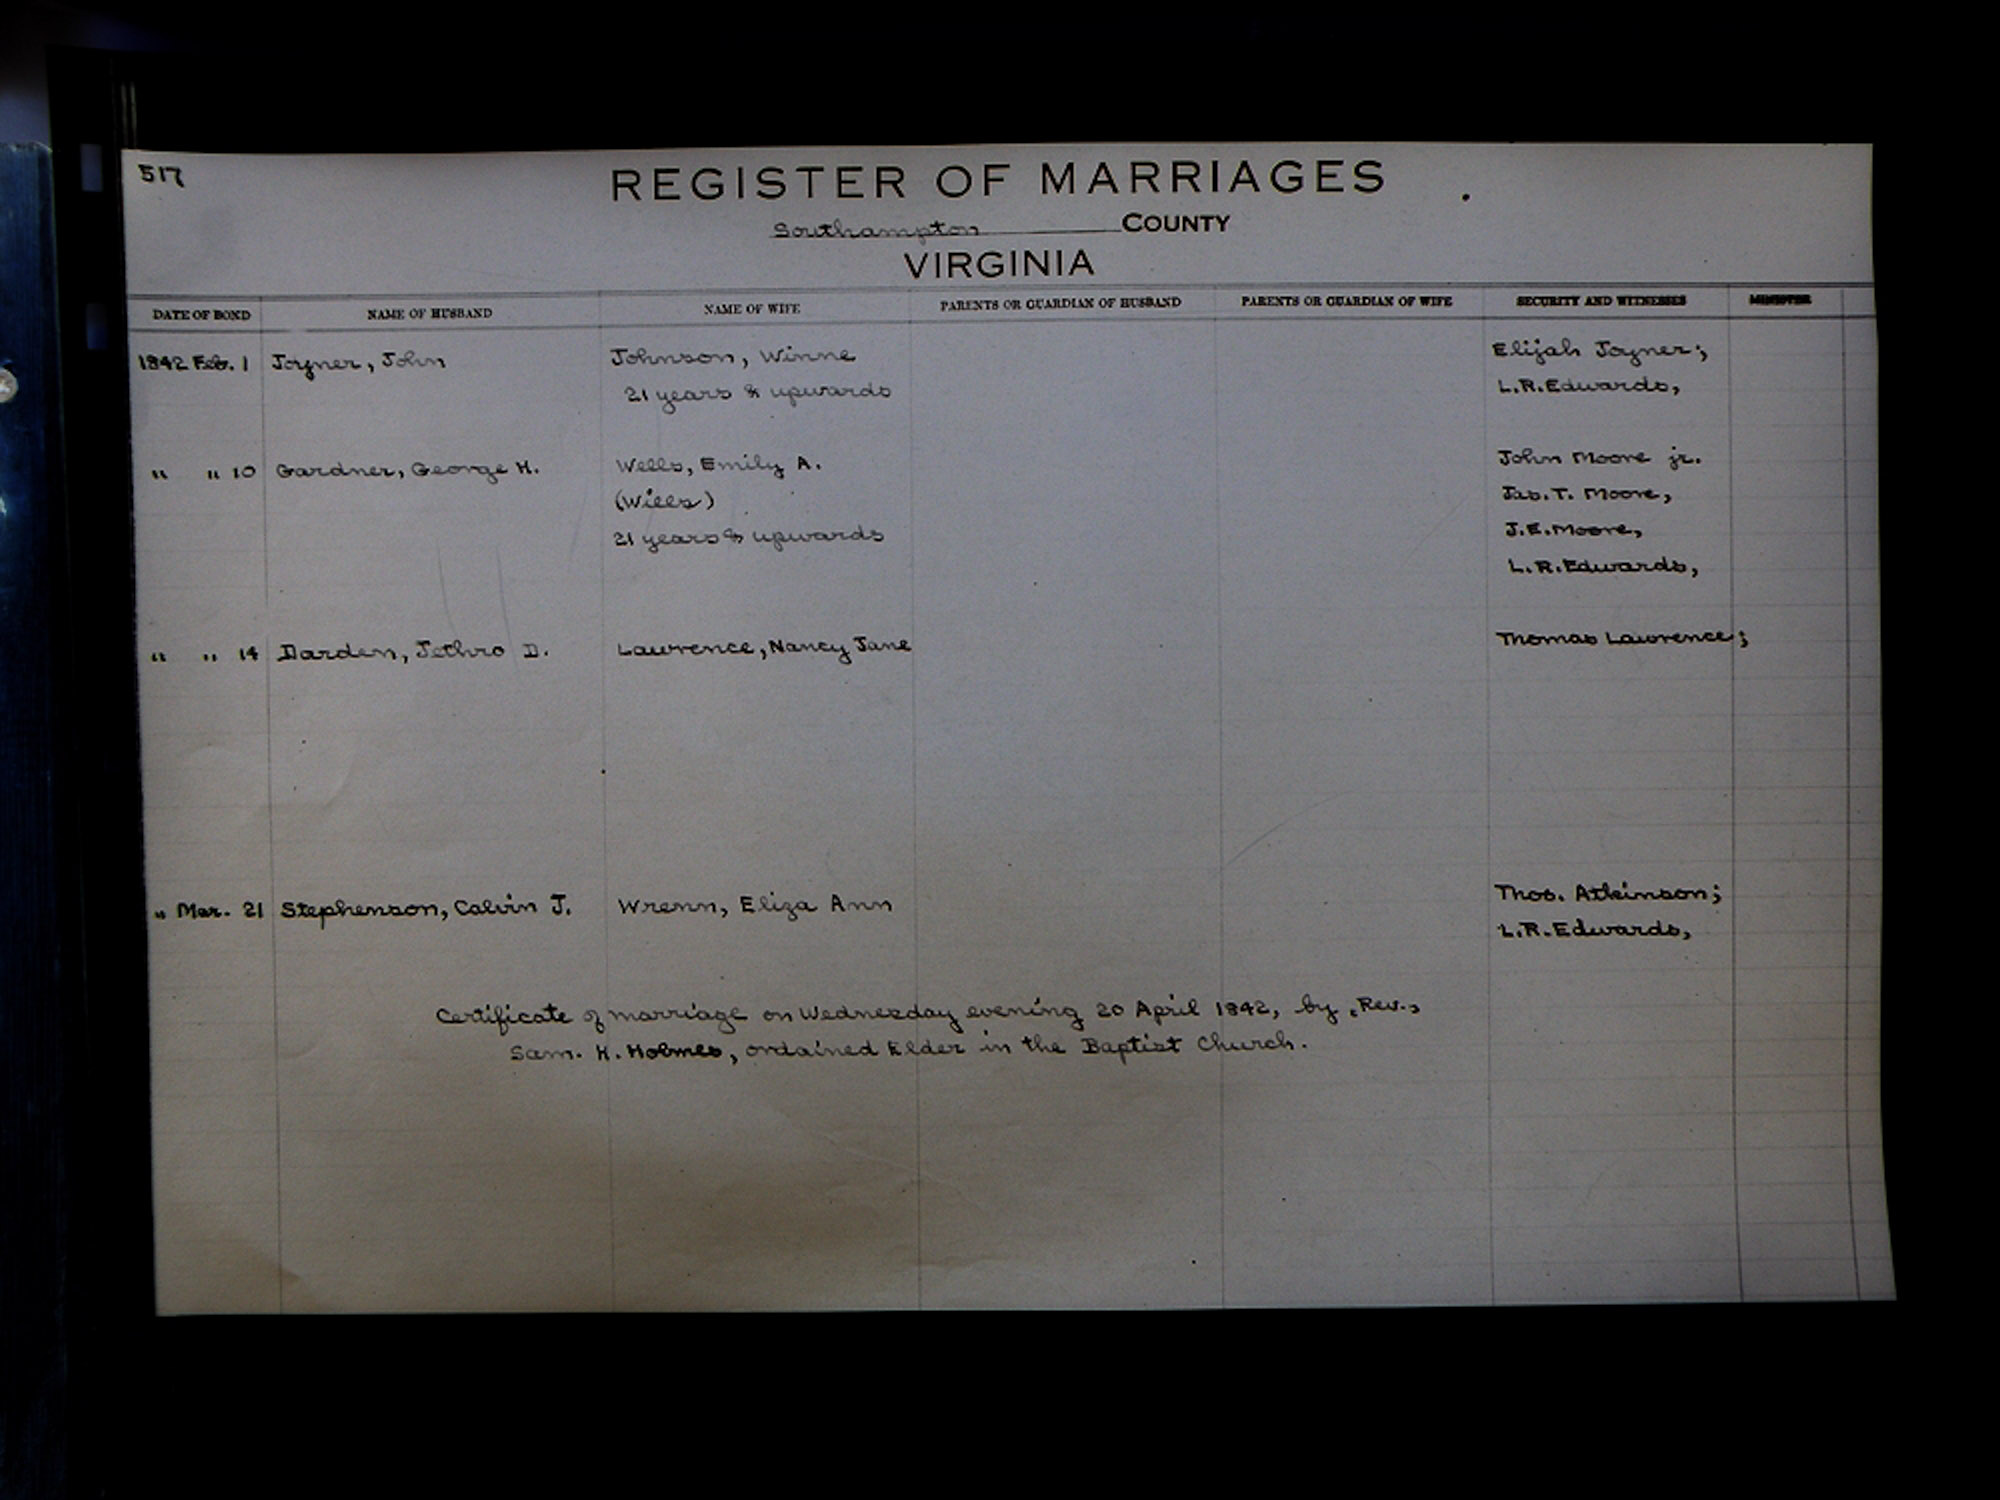 517
REGISTER OF MARRIAGES
Southampton COUNTY
VIRGINIA
DATE OF BOND NAME OF HUSBAND NAME OF WIFE PARENTS OR GUARDIAN OF HUSBAND PARENTS OR GUARDIAN OF WIFE SECURITY AND WITNESSES MINISTER
1842 Feb. 1 Joyner, John Johnson, Winne Elijah Joyner;
21 years & upwards L.R.Edwards,
" " 10 Gardner, George H. Wells, Emily A. John Moore jr.
(Wills) Jas. T. Moore,
21 years & upwards J.E.Moore,
L.R.Edwards,
" " 14 Darden, Jethro D. Lawrence, Nancy Jane Thomas Lawrence;
" Mar. 21 Stephenson, Calvin J. Wrenn, Eliza Ann Thos. Atkinson;
L.R.Edwards,
Certificate of marriage on Wednesday evening 20 April 1842, by Rev.
Sam. H. Holmes, ordained Elder in the Baptist Church.